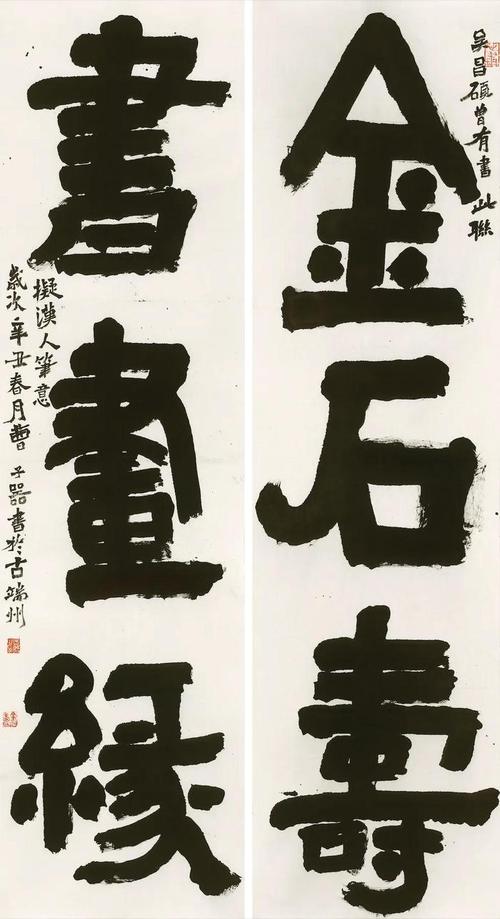 金石壽
吴昌碩曾有書此聯
書畫緣
擬漢人筆意
歲次辛丑春月曹子器書於古端州